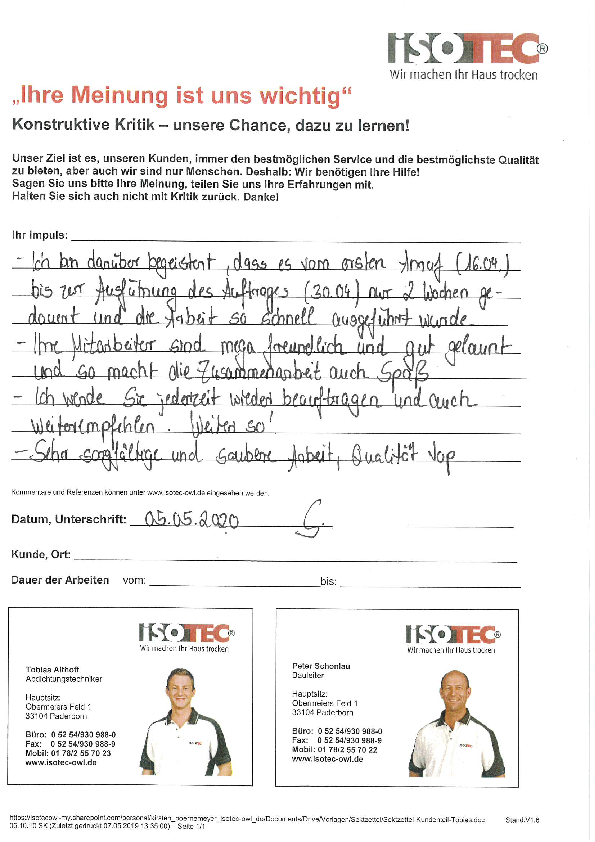 ISOTEC®
Wir machen Ihr Haus trocken
„Ihre Meinung ist uns wichtig“
Konstruktive Kritik – unsere Chance, dazu zu lernen!
Unser Ziel ist es, unseren Kunden, immer den bestmöglichen Service und die bestmöglichste Qualität
zu bieten, aber auch wir sind nur Menschen. Deshalb: Wir benötigen Ihre Hilfe!
Sagen Sie uns bitte Ihre Meinung, teilen Sie uns Ihre Erfahrungen mit.
Halten Sie sich auch nicht mit Kritik zurück. Danke!
Ihr Impuls:
- Ich bin darüber begeistert, dass es vom ersten Anruf (16.04.)
bis zur Ausführung des Auftrages (30.04) nur 2 Wochen ge-
dauert und die Arbeit so schnell ausgeführt wurde
- Ihre Mitarbeiter sind mega freundlich und gut gelaunt
und so macht die Zusammenarbeit auch Spaß
- Ich werde Sie jederzeit wieder beauftragen und auch
weiterempfehlen. Weiter so!
- Sehr sorgfältige und saubere Arbeit, Qualität Top
Kommentare und Referenzen können unter www.isotec-owl.de eingesehen werden.
Datum, Unterschrift: 05.05.2020
Kunde, Ort:
Dauer der Arbeiten vom: bis:
ISOTEC®
Wir machen Ihr Haus trocken
Tobias Althoff
Abdichtungstechniker
Hauptsitz:
Obermeiers Feld 1
33104 Paderborn
Büro: 0 52 54/930 988-0
Fax: 0 52 54/930 988-9
Mobil: 01 78/2 55 70 23
www.isotec-owl.de
ISOTEC®
Wir machen Ihr Haus trocken
Peter Schonlau
Bauleiter
Hauptsitz:
Obermeiers Feld 1
33104 Paderborn
Büro: 0 52 54/930 988-0
Fax: 0 52 54/930 988-9
Mobil: 01 78/2 55 70 22
www.isotec-owl.de
05.10.10 SK (Zuletzt gedruckt 07.05.2019 13:35:00) Seite 1/1
Stand:V1.6